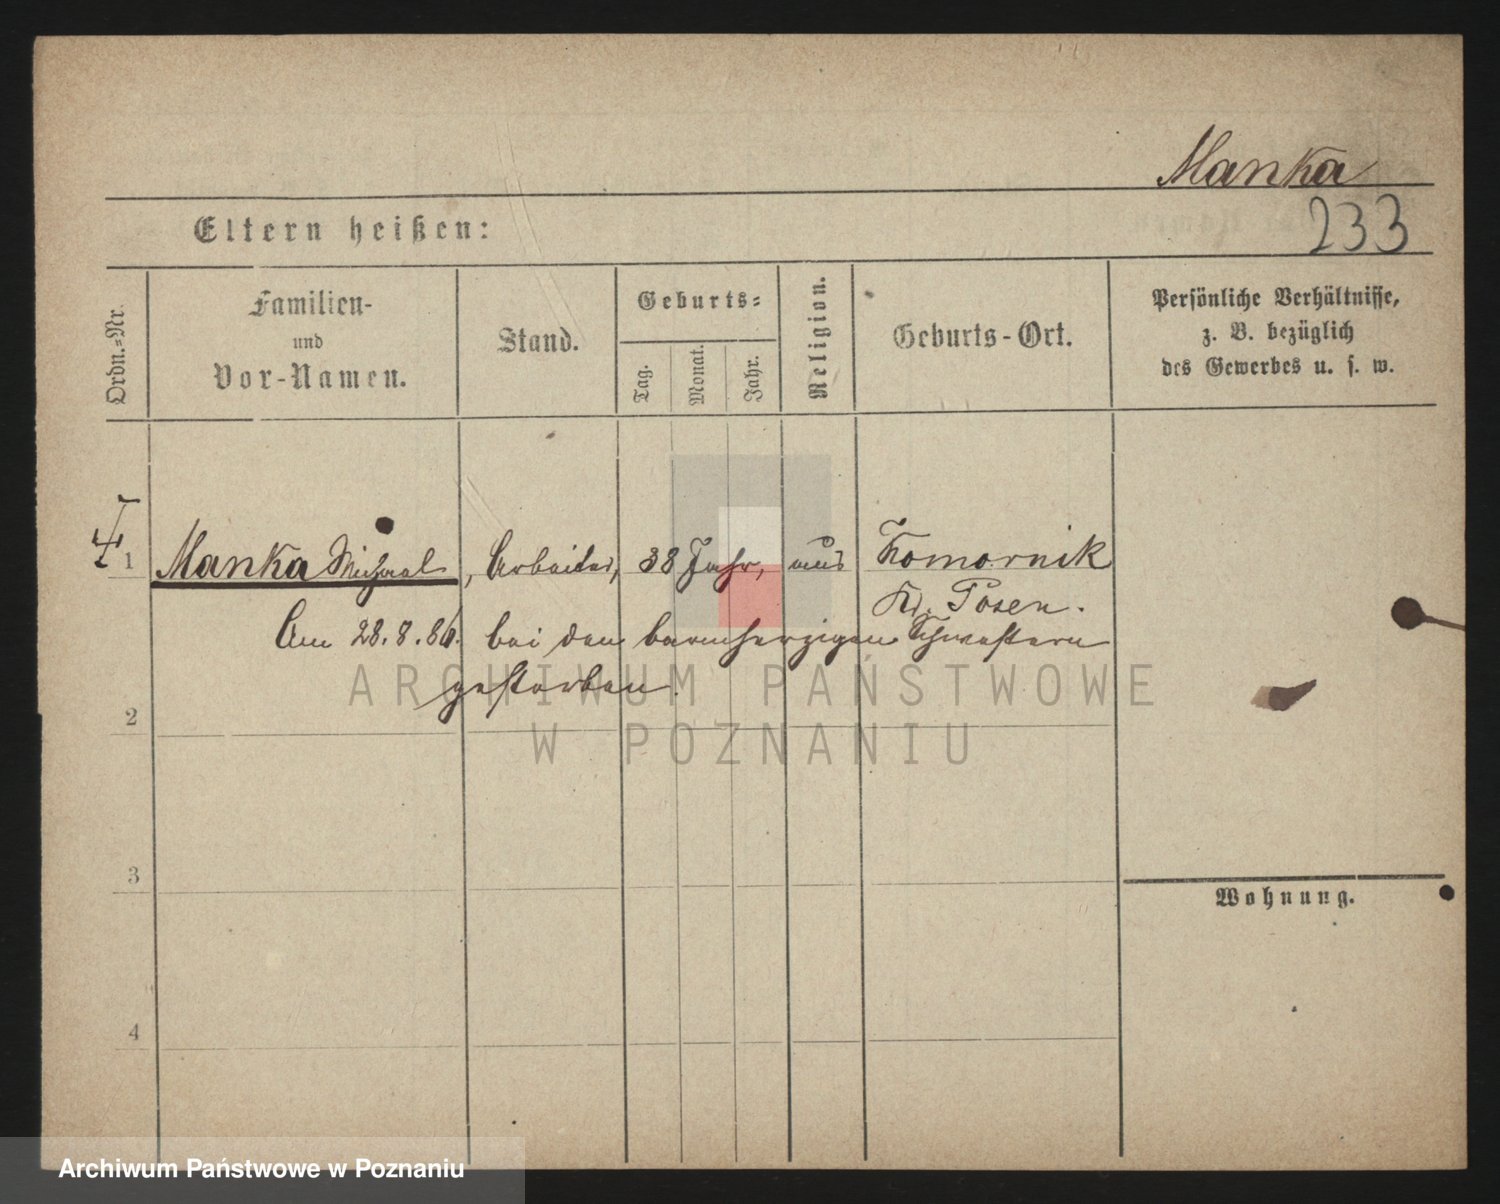 Manka
Eltern heißen:
233
Ordn.-Nr.
Familien-
und
Vor-Namen.
Stand.
Geburts-
Tag.
Monat.
Jahr.
Religion.
Geburts-Ort.
Persönliche Verhältnisse,
z. B. bezüglich
des Gewerbes u. s. w.
1 Manka Michael, Arbeiter, 38 Jahr, aus Komornik
Kr. Posen.
Am 28.8.86. bei den barmherzigen Schwestern
gestorben.
ARCHIWUM PAŃSTWOWE
W POZNANIU
2
3
Wohnung.
4
Archiwum Państwowe w Poznaniu